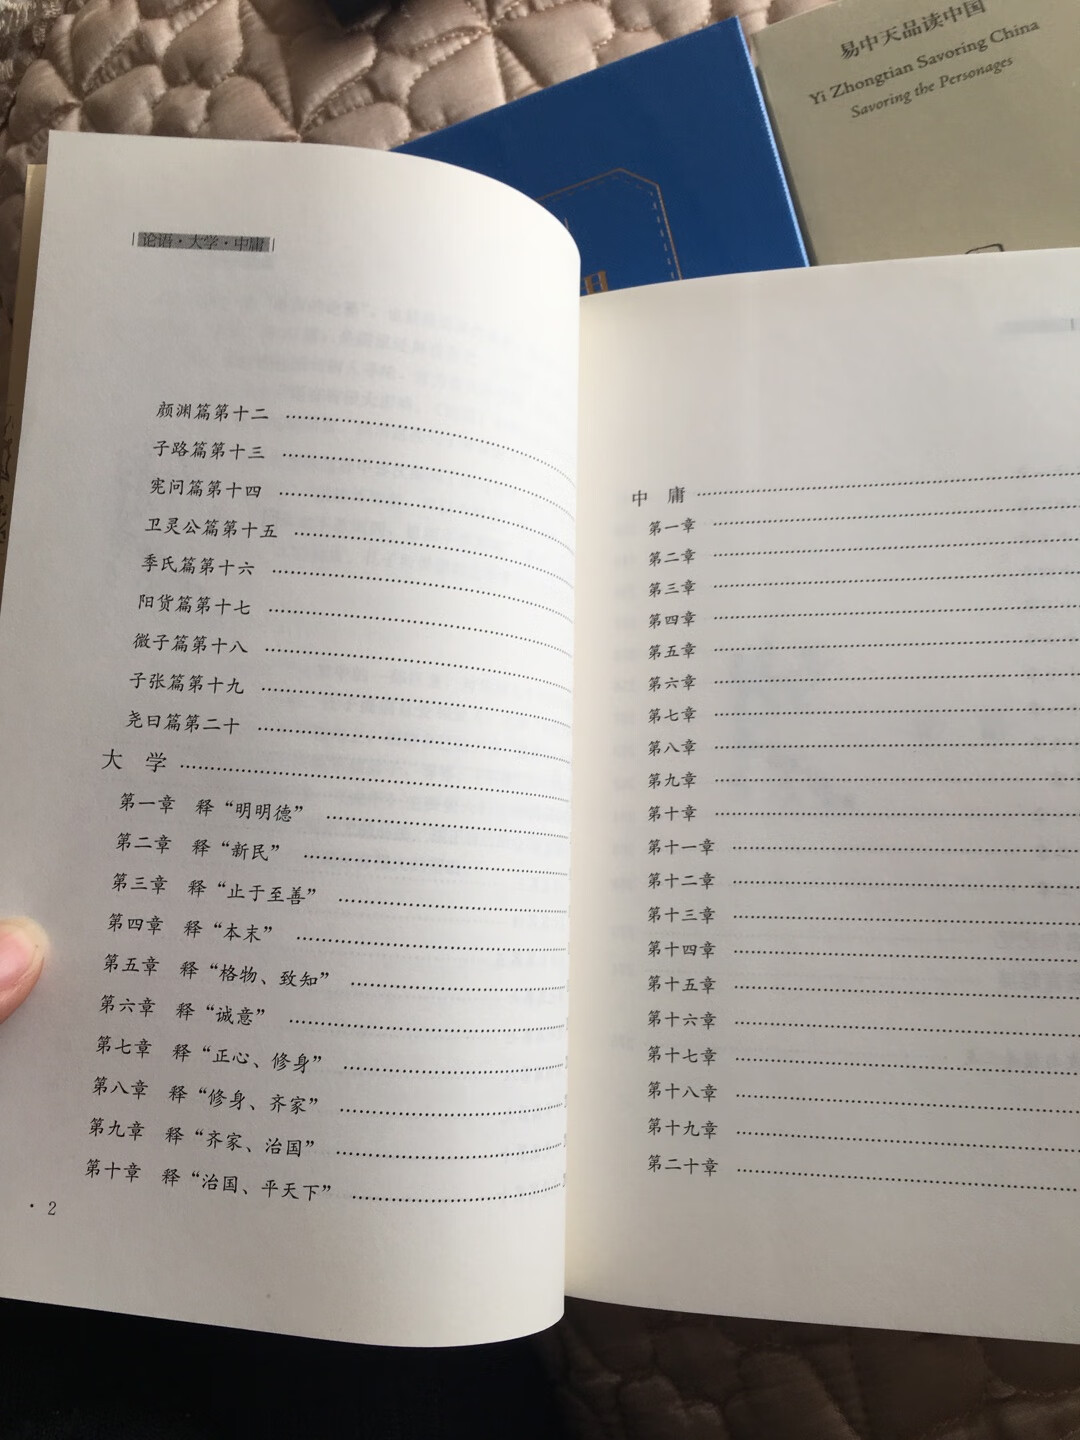 易中天品读中国
Yi Zhongtian Savoring China
Savoring the Personages
论语·大学·中庸
颜渊篇第十二
子路篇第十三
宪问篇第十四
卫灵公篇第十五
季氏篇第十六
阳货篇第十七
微子篇第十八
子张篇第十九
尧曰篇第二十
大 学
第一章 释“明明德”
第二章 释“新民”
第三章 释“止于至善”
第四章 释“本末”
第五章 释“格物、致知”
第六章 释“诚意”
第七章 释“正心、修身”
第八章 释“修身、齐家”
第九章 释“齐家、治国”
第十章 释“治国、平天下”
· 2
中 庸
第一章
第二章
第三章
第四章
第五章
第六章
第七章
第八章
第九章
第十章
第十一章
第十二章
第十三章
第十四章
第十五章
第十六章
第十七章
第十八章
第十九章
第二十章